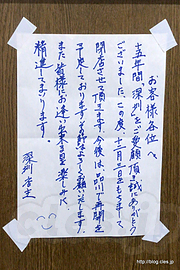 お客様各位へ
十五年間「深川」をご愛顧頂き誠にありがとう
ございました。この度、十二月三十日をもちまして
閉店させて頂きます。今後は、品川で再開を
予定しておりますので何卒よろしくお願い致します。
また皆様にお逢い出来る日を楽しみに、
精進してまいります。
深川 店主
http://blog.cles.jp